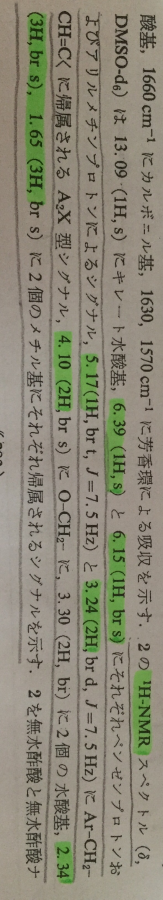 酸基，1660 cm⁻¹ にカルボニル基，1630，1570 cm⁻¹ に芳香環による吸収を示す．2 の ¹H-NMR スペクトル (δ,
DMSO-d₆) は 13.09 (1H, s) にキレート水酸基，6.39 (1H, s) と 6.15 (1H, br s) にそれぞれベンゼンプロトンお
よびアリルメチンプロトンによるシグナル，5.17 (1H, br t, J=7.5 Hz) と 3.24 (2H, br d, J=7.5 Hz) に Ar-CH₂-
CH=C< に帰属される A₂X 型シグナル，4.10 (2H, br s) に O-CH₂- に，3.30 (2H, br) に 2 個の水酸基，2.34
(3H, br s)，1.65 (3H, br s) に 2 個のメチル基にそれぞれ帰属されるシグナルを示す．2 を無水酢酸と無水酢酸ナ